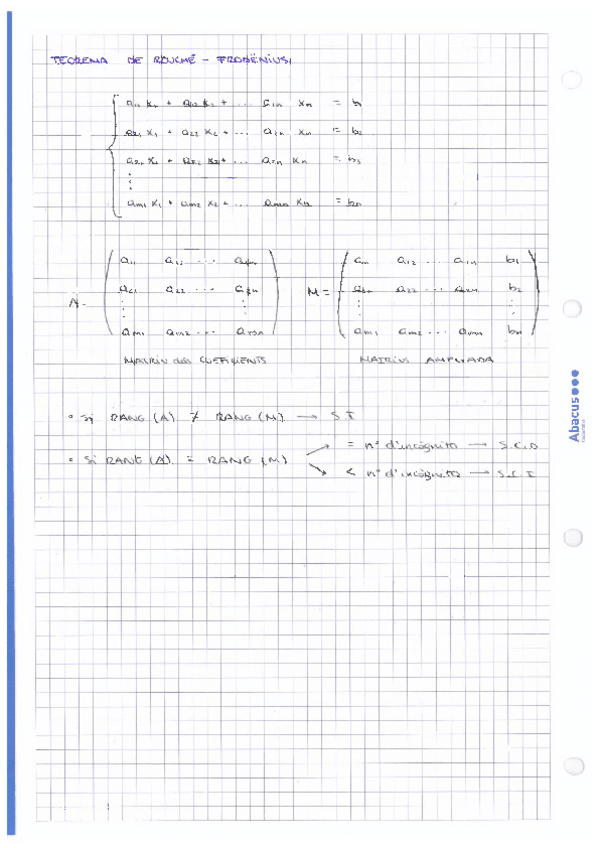 TEOREMA DE ROUCHÉ - FROBËNIUS
a₁₁ x₁ + a₁₂ x₂ + ... a₁n xn = b₁
a₂₁ x₁ + a₂₂ x₂ + ... a₂n xn = b₂
a₃₁ x₁ + a₃₂ x₃ + ... a₃n xn = b₃
⋮
am₁ x₁ + am₂ x₂ + ... amn xn = bn
a₁₁ a₁₂ ... a₁n a₁₁ a₁₂ ... a₁n b₁
A = a₂₁ a₂₂ ... a₂n M = a₂₁ a₂₂ ... a₂n b₂
⋮ ⋮ ⋮ ⋮ ⋮ ⋮ ⋮
am₁ am₂ ... amn am₁ am₂ ... amn bn
MATRIU dels COEFICIENTS MATRIUS AMPLIADA
• Si RANG (A) ≠ RANG (M) → S.I
• Si RANG (A) = RANG (M) ↗ = nº d'incògnita → S.C.D
↘ < nº d'incògnita → S.C.I
Abacus